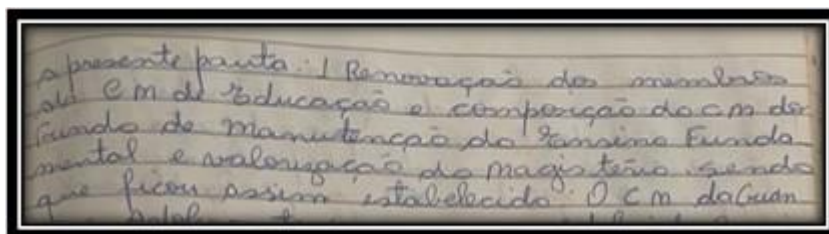 a presente pauta. 1 Renovação dos membros
do CM de Educação e composição do CM do
Fundo de Manutenção do Ensino Funda
mental e valorização do magistério sendo
que ficou assim estabelecido. O CM da